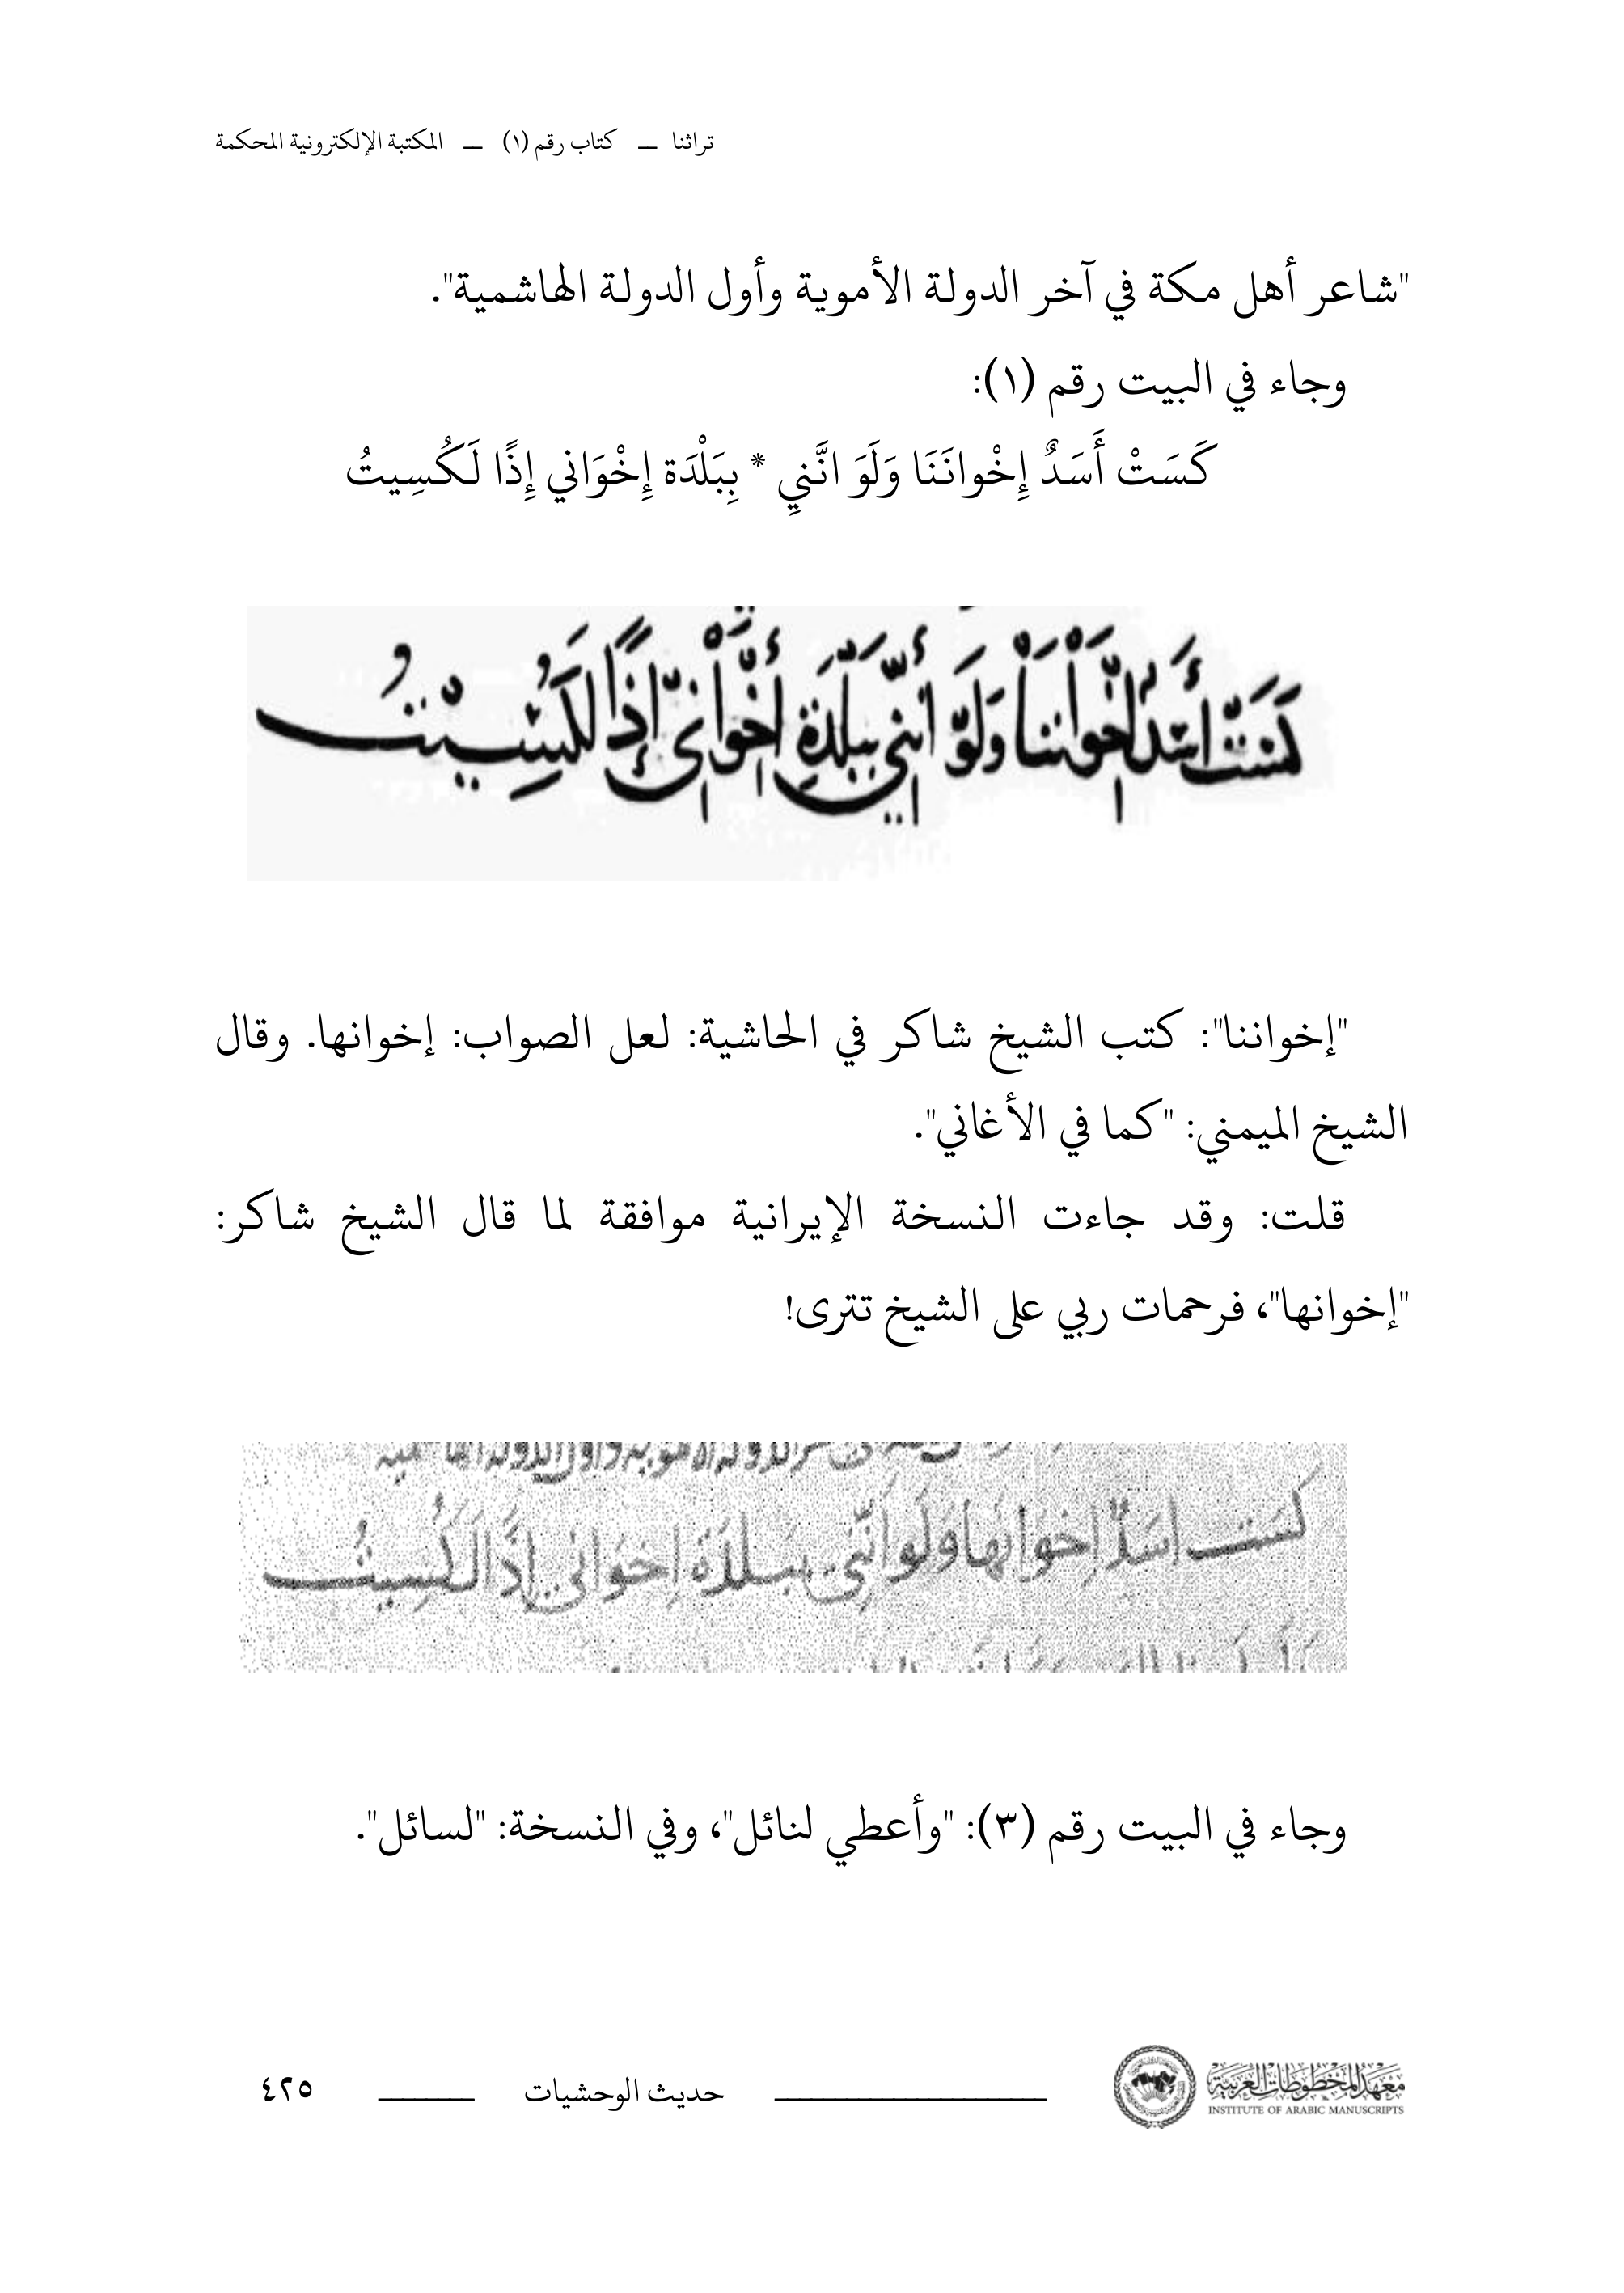 تراثنا — كتاب رقم (١) — المكتبة الإلكترونية المحكمة
"شاعر أهل مكة في آخر الدولة الأموية وأول الدولة الهاشمية".
وجاء في البيت رقم (١):
كَسَتْ أَسَدٌ إِخْوانَنَا وَلَوَ انَّنيِ * بِبَلْدَة إِخْوَاني إِذًا لَكُسِيتُ
كَسَتْ أَسَدٌ إِخْوَانَنَا وَلَوْ أَنَّنِي بِبَلْدَةِ إِخْوَانِي إِذًا لَكُسِيْتُ
"إخواننا": كتب الشيخ شاكر في الحاشية: لعل الصواب: إخوانها. وقال
الشيخ الميمني: "كما في الأغاني".
قلت: وقد جاءت النسخة الإيرانية موافقة لما قال الشيخ شاكر:
"إخوانها"، فرحمات ربي على الشيخ تترى!
كَسَت اسَدٌ اِخوَانها وَلَو انَّنِي ببَلدَة اِخوَاني اِذًا لَكُسِيتُ
وجاء في البيت رقم (٣): "وأعطي لنائل"، وفي النسخة: "لسائل".
معهد المخطوطات العربية
INSTITUTE OF ARABIC MANUSCRIPTS
حديث الوحشيات
٤٢٥